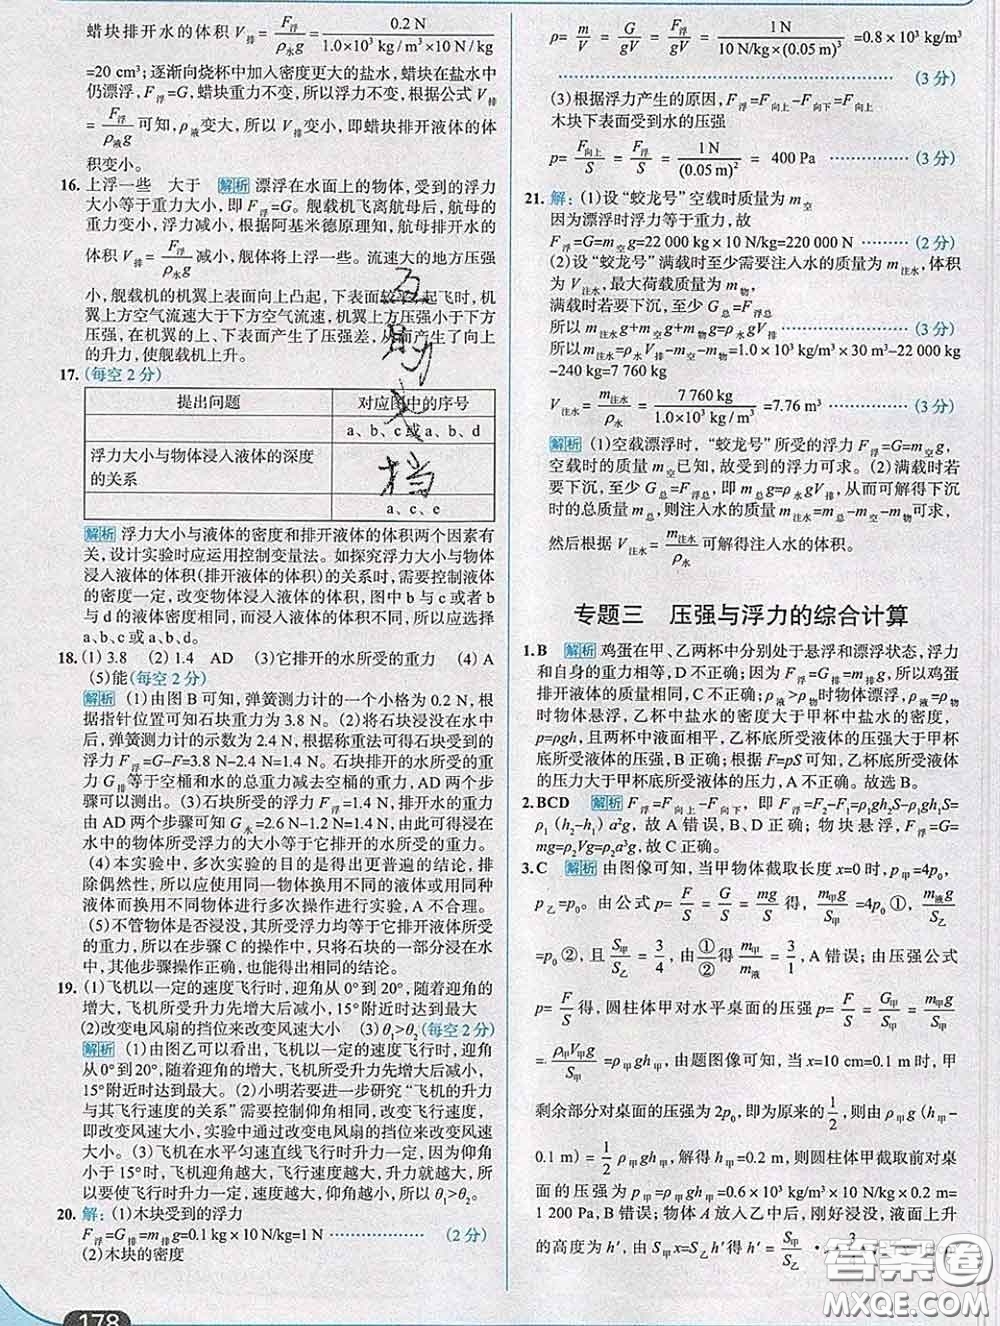 蜡块排开水的体积 V排=F浮/ρ水g=0.2 N/1.0×10³ kg/m³×10 N/kg
=20 cm³；逐渐向烧杯中加入密度更大的盐水，蜡块在盐水中
仍漂浮，F浮=G，蜡块重力不变，所以浮力不变，根据公式 V排
=F浮/ρ液g可知，ρ液变大，所以 V排变小，即蜡块排开液体的体
积变小。
16. 上浮一些 大于 解析 漂浮在水面上的物体，受到的浮力
大小等于重力大小，即 F浮=G。舰载机飞离航母后，航母的
重力变小，浮力减小，根据阿基米德原理知，航母排开水的
体积 V排=F浮/ρ水g减小，舰体将上浮一些。流速大的地方压强
小，舰载机的机翼上表面向上凸起，下表面较平，起飞时，机
翼上方空气流速大于下方空气流速，机翼上方压强小于下方
压强，在机翼的上、下表面产生了压强差，从而产生了向上
的升力，使舰载机上升。
17. (每空 2 分)
提出问题 对应图中的序号
a、b、c或a、b、d
浮力大小与物体浸入液体的深度
的关系
a、c、e
解析 浮力大小与液体的密度和排开液体的体积两个因素有
关，设计实验时应运用控制变量法。如探究浮力大小与物体
浸入液体的体积(排开液体的体积)的关系时，需要控制液体
的密度一定，改变物体浸入液体的体积，图中 b 与 c 或者 b
与 d 的液体密度相同，而浸入液体的体积不同，所以应选择
a、b、c 或 a、b、d。
18. (1) 3.8 (2) 1.4 AD (3)它排开的水所受的重力 (4) A
(5)能(每空 2 分)
解析 (1)由图 B 可知，弹簧测力计的一个小格为 0.2 N，
根据指针位置可知石块重力为 3.8 N。(2)将石块浸没在水中
后，弹簧测力计的示数为 2.4 N，根据称重法可得石块受到的
浮力 F浮=G-F=3.8 N-2.4 N=1.4 N。石块排开的水所受的重
力 G排等于空桶和水的总重力减去空桶的重力，AD 两个步
骤可以测出。(3)石块所受的浮力 F浮=1.4 N，排开水的重力
由 AD 两个步骤可知 G水=2.6 N-1.2 N=1.4 N，由此可得浸在
水中的物体所受浮力的大小等于它排开的水所受的重力。
(4)本实验中，多次实验的目的是得出更普遍的结论，排
除偶然性，所以应使用同一物体换用不同的液体或用同种
液体而换用不同物体进行多次操作进行实验，A 不合理。
(5)不管物体是否浸没，其所受浮力均等于它排开液体所受
的重力，所以在步骤 C 的操作中，只将石块的一部分浸在水
中，其他步骤操作正确，也能得出相同的结论。
19. (1)飞机以一定的速度飞行时，迎角从 0°到 20°，随着迎角的
增大，飞机所受升力先增大后减小，15°附近时达到最大
(2)改变电风扇的挡位来改变风速大小 (3) θ₁>θ₂(每空 2 分)
解析 (1)由图乙可以看出，飞机以一定的速度飞行时，迎角
从 0°到 20°，随着迎角的增大，飞机所受升力先增大后减小，
15°附近时达到最大。(2)小明若要进一步研究“飞机的升力
与其飞行速度的关系”需要控制仰角相同，改变飞行速度，
即改变风速大小，实验中通过改变电风扇的挡位来改变风速
大小。(3)飞机在水平匀速直线飞行时升力不变，因为仰角
小于 15°时，飞机迎角越大，飞行速度越大，升力就越大，所
以要使飞行升力一定，速度越大，仰角越小，所以 θ₁>θ₂。
20. 解：(1)木块受到的浮力
F浮=G排=m排g=0.1 kg×10 N/kg=1 N ………… (2 分)
(2)木块的密度
178
ρ=m/V=G/gV=F浮/gV=1 N/10 N/kg×(0.05 m)³=0.8×10³ kg/m³
………… (3 分)
(3)根据浮力产生的原因，F浮=F向上-F向下=F向上
木块下表面受到水的压强
p=F向上/S=F浮/S=1 N/(0.05 m)²=400 Pa ………… (3 分)
21. 解：(1)设“蛟龙号”空载时质量为 m空
因为漂浮时浮力等于重力，故
F浮=G=m空g=22 000 kg×10 N/kg=220 000 N ……… (2 分)
(2)设“蛟龙号”满载时至少需要注入水的质量为 m注水，体积
为 V注水，最大荷载质量为 m物，
满载时若要下沉，至少 G总=F浮总
所以 m注水g+m空g+m物g=ρ水gV排 ………… (3 分)
所以 m注水=ρ水V排-m物-m空=1.0×10³ kg/m³×30 m³-22 000 kg
-240 kg=7 760 kg
V注水=m注水/ρ水=7 760 kg/1.0×10³ kg/m³=7.76 m³ ……… (3 分)
解析 (1)空载漂浮时，“蛟龙号”所受的浮力 F浮=G=m空g，
空载时的质量 m空已知，故受到的浮力可求。(2)满载时若
要下沉，至少 G总=F浮总，即 m总g=ρ水gV排，从而可解得下沉
时的总质量 m总，则注入水的质量与体积可求，
然后根据 V注水=m注水/ρ水可解得注入水的体积。
专题三 压强与浮力的综合计算
1. B 解析 鸡蛋在甲、乙两杯中分别处于悬浮和漂浮状态，浮力
和自身的重力相等，D 不正确；因为 F浮=G=G排=m排g，所以鸡蛋
排开液体的质量相同，C 不正确；ρ液>ρ物时物体漂浮，ρ液=ρ物
时物体悬浮，乙杯中盐水的密度大于甲杯中盐水的密度，
p=ρgh，且两杯中液面相平，乙杯底所受液体的压强大于甲杯
底所受液体的压强，B 正确；根据 F=pS 可知，乙杯底所受液体
的压力大于甲杯底所受液体的压力，A 不正确。故选 B。
2. BCD 解析 F浮=F向上-F向下，即 F浮=F₂-F₁=ρ₁gh₂S-ρ₁gh₁S=
ρ₁(h₂-h₁)a²g，故 A 错误，B、D 正确；物块悬浮，F浮=G=
mg=ρ₂Vg=ρ₂a³g，故 C 正确。
3. C 解析 由图像可知，当甲物体截取长度 x=0 时，p甲=4p₀，
p乙=p₀。由公式 p=F/S=G/S=mg/S得，m甲g/S甲=4p₀①，m液g/S乙
=p₀②，且 S甲/S乙=3/4，由①/②得m甲/m液=3/1，A 错误；由压强公式
p=F/S得，圆柱体甲对水平桌面的压强 p甲=F/S=G甲/S甲=m甲g/S甲
=ρ甲V甲g/S甲=ρ甲gh甲，由题图像可知，当 x=10 cm=0.1 m 时，甲
剩余部分对桌面的压强为 2p₀，即为原来的1/2，则 ρ甲g(h甲-
0.1 m)=1/2ρ甲gh甲，解得 h甲=0.2 m，则圆柱体甲截取前对桌
面的压强为 p甲=ρ甲gh甲=0.6×10³ kg/m³×10 N/kg×0.2 m=
1 200 Pa，B 错误；物体 A 放入乙中后，刚好浸没，液面上升
的高度为 h′，由 S甲x=S乙h′得 h′=S甲/S乙·
互助文档
答案圈
MXQE.COM